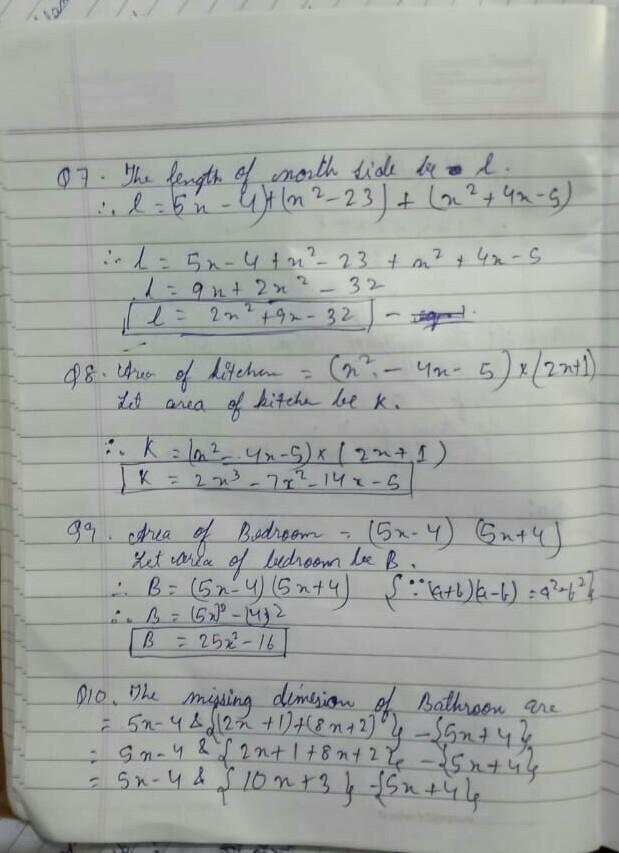 Q7. The length of north side be l.
∴ l = (5x - 4) + (x² - 23) + (x² + 4x - 5)
∴ l = 5x - 4 + x² - 23 + x² + 4x - 5
l = 9x + 2x² - 32
l = 2x² + 9x - 32 -
Q8. Area of kitchen = (x² - 4x - 5) × (2x+1)
Let area of kitche be K.
∴ K = (x² - 4x - 5) × (2x + 1)
K = 2x³ - 7x² - 14x - 5
Q9. Area of Bedroom = (5x-4) (5x+4)
Let area of bedroom be B.
∴ B = (5x-4) (5x+4) {∵ (a+b)(a-b) = a²-b²}
∴ B = (5x)² - (4)²
B = 25x² - 16
Q10. The missing dimesion of Bathroon are
= 5x-4 & {(2x+1)+(8x+2)} - {5x+4}
= 5x-4 & {2x+1+8x+2} - {5x+4}
= 5x-4 & {10x+3} - {5x+4}